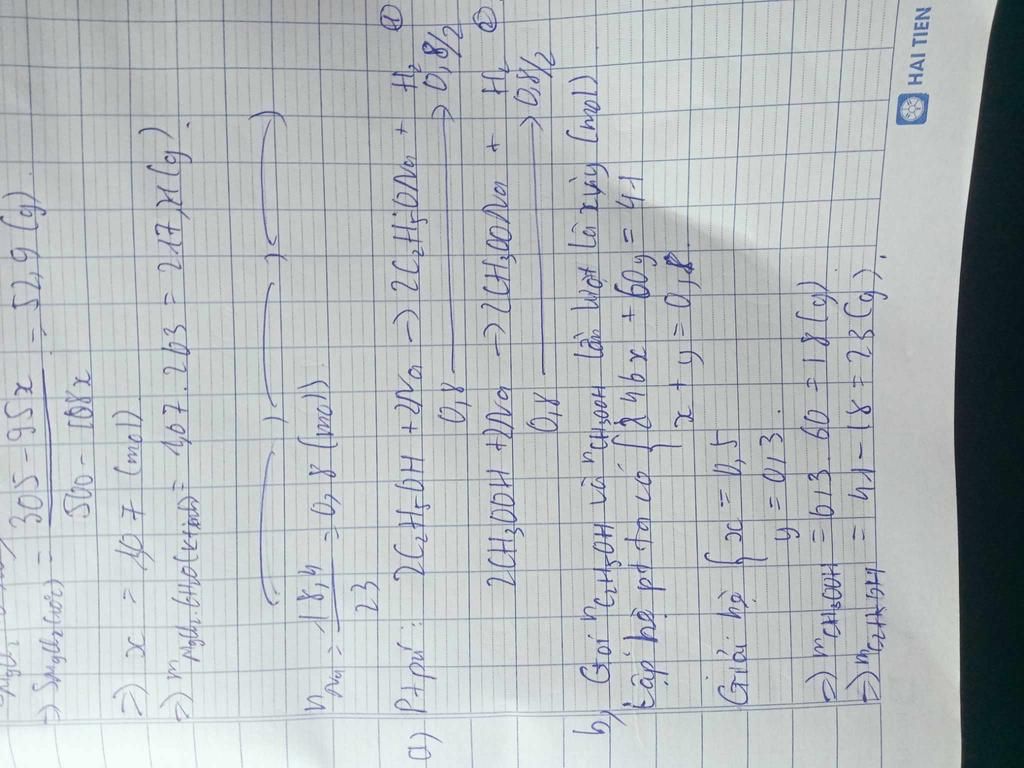 => S MgCl2 (10°C) = 305 - 95x / 500 - 108x = 52,9 (g).
=> x = 1,07 (mol)
=> m MgCl2.6H2O (k tinh) = 1,07.203 = 217,21 (g).
n Na = 18,4 / 23 = 0,8 (mol)
a) Ptpứ : 2C2H5OH + 2Na -> 2C2H5ONa + H2 ①
0,8 -> 0,8/2
2CH3OOH + 2Na -> 2CH3OONa + H2 ②
0,8 -> 0,8/2
b) Gọi n C2H5OH và n CH3OOH lần lượt là x, y (mol)
Lập hệ pt ta có { 46x + 60y = 41
x + y = 0,8
Giải hệ { x = 0,5
y = 0,3
=> m CH3OOH = 0,3.60 = 18 (g)
=> m C2H5OH = 41 - 18 = 23 (g).
HAI TIEN